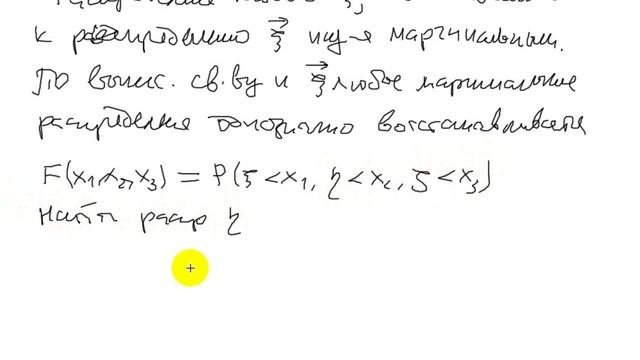 к распределению ξ⃗ наз-я маргинальным.
По выпис. св.ву и ξ⃗ любое маргинальное
распределение однозначно восстанавливается
F(x₁,x₂,x₃) = P(ξ<x₁, η<x₂, ζ<x₃)
Найти распр η